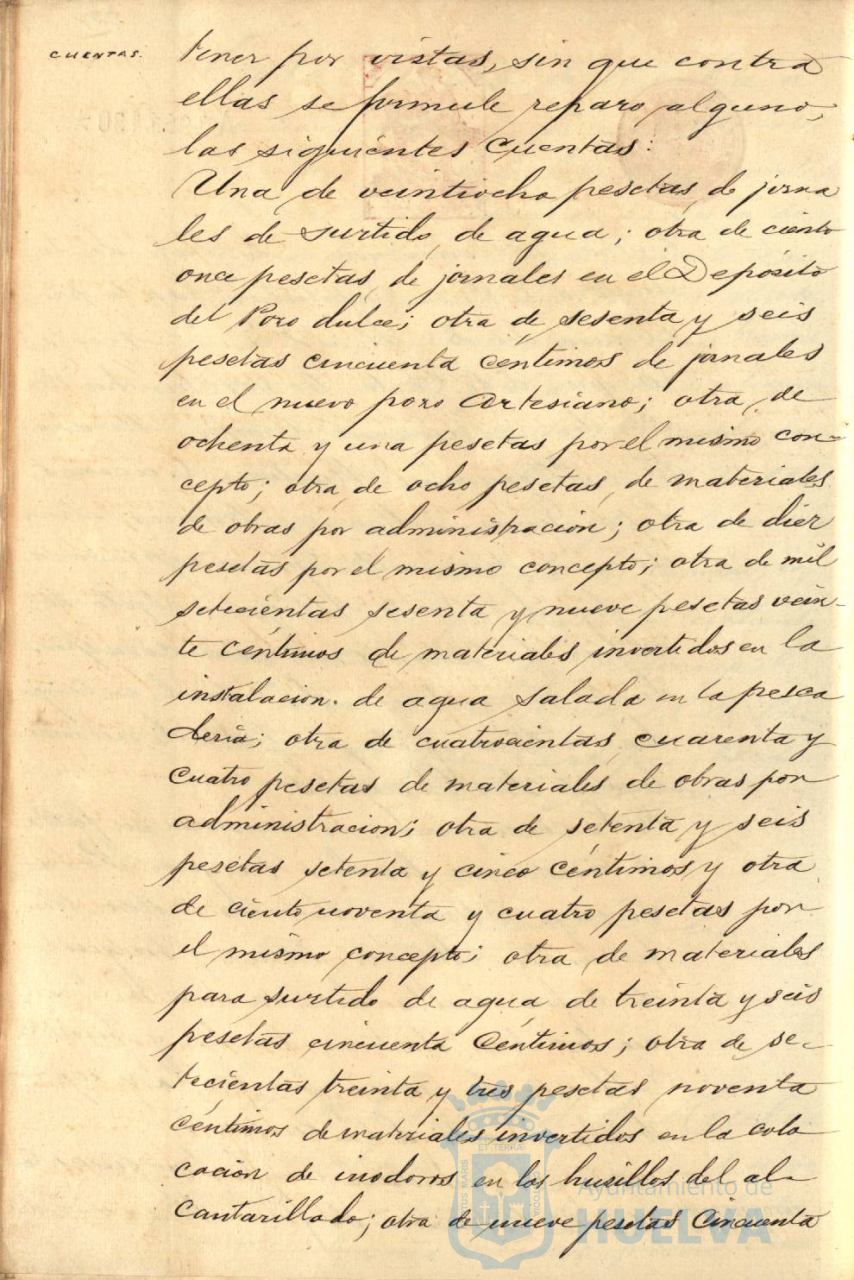 CUENTAS.
tener por vistas, sin que contra
ellas se formule reparo alguno,
las siguientes cuentas:
Una de veintiocho pesetas, de jorna
les de surtido de agua; otra de ciento
once pesetas, de jornales en el Depósito
del Pozo dulce; otra de sesenta y seis
pesetas cincuenta céntimos de jornales
en el nuevo pozo Artesiano; otra de
ochenta y una pesetas por el mismo con-
cepto; otra de ocho pesetas, de materiales
de obras por administración; otra de diez
pesetas por el mismo concepto; otra de mil
setecientas sesenta y nueve pesetas vein-
te céntimos de materiales invertidos en la
instalacion. de agua salada en la pesca
dería; otra de cuatrocientas cuarenta y
cuatro pesetas de materiales de obras por
administracion; otra de setenta y seis
pesetas setenta y cinco céntimos y otra
de ciento noventa y cuatro pesetas por
el mismo concepto; otra de materiales
para surtido de agua, de treinta y seis
pesetas cincuenta céntimos; otra de se-
tecientas treinta y tres pesetas noventa
céntimos de materiales invertidos en la colo
cación de inodoros en los husillos del al-
cantarillado; otra de nueve pesetas cincuenta
Ayuntamiento de
HUELVA